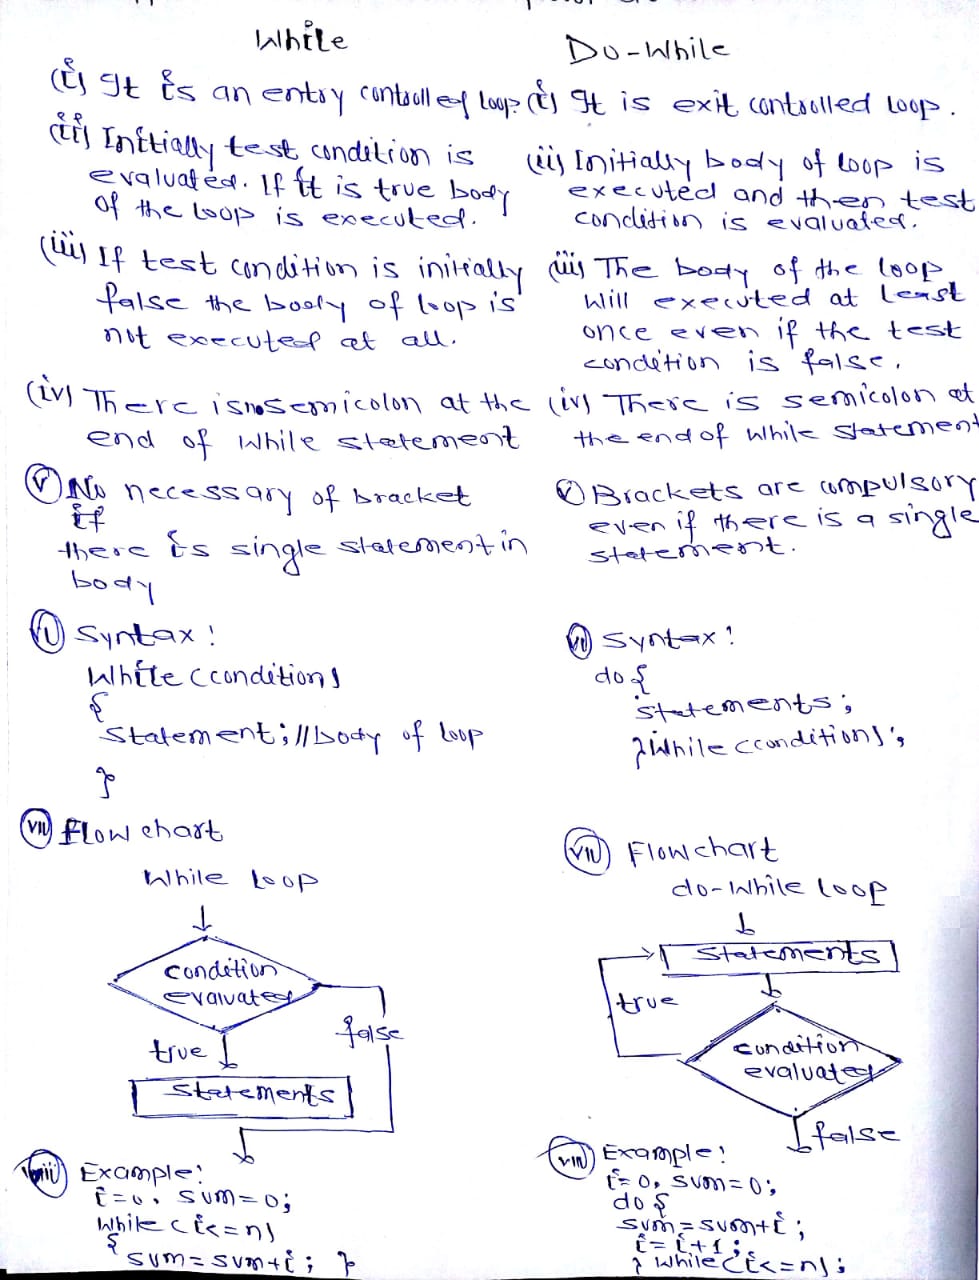 While
(i) It is an entry controlled loop.
(ii) Initially test condition is
evaluated. If it is true body
of the loop is executed.
(iii) If test condition is initially
false the body of loop is
not executed at all.
(iv) There is no semicolon at the
end of while statement
(v) No necessary of bracket
if
there is single statement in
body
(vi) Syntax:
While (condition)
{
Statement; // body of loop
}
(vii) Flow chart
While loop
condition
evaluated
true
false
statements
(viii) Example:
i=0, sum=0;
while (i<=n)
{
sum=sum+i; }
Do-While
(i) It is exit controlled loop.
(ii) Initially body of loop is
executed and then test
condition is evaluated.
(iii) The body of the loop
will executed at least
once even if the test
condition is false.
(iv) There is semicolon at
the end of while statement
(v) Brackets are compulsory
even if there is a single
statement.
(vi) Syntax:
do {
statements;
} while (condition);
(vii) Flowchart
do-while loop
statements
true
condition
evaluated
false
(viii) Example:
i=0, sum=0;
do {
sum=sum+i;
i=i+1;
} while (i<=n);